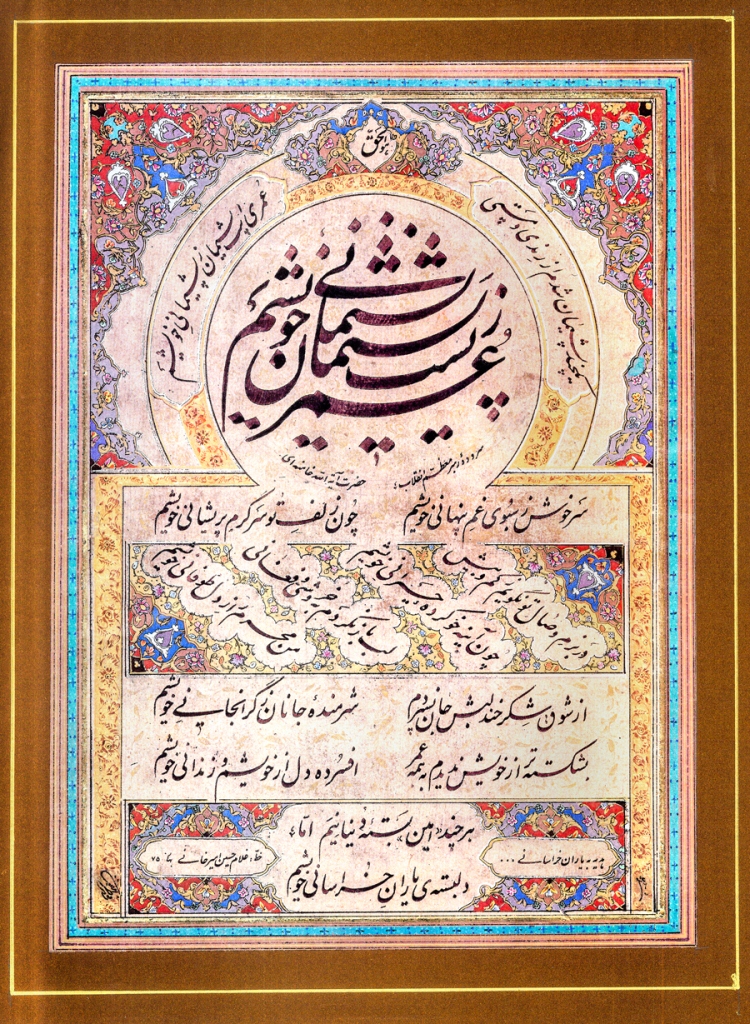 هو الحق
یکچند پشیمان شدم از رندی و مستی
عمری پشیمان ز پشیمانی خویشم
عمریست پشیمان ز پشیمانی خویشم
سروده رهبر معظم انقلاب؛
حضرت آیة الله خامنه‌ای
سرخوش ز سبوی غم پنهانی خویشم
چون زلف تو سرگرم پریشانی خویشم
در بزم وصال تو نگویم ز کم و بیش
چون آینه خو کرده به حیرانی خویشم
لب باز نکردم به خروشی و فغانی
من محرم راز دل طوفانی خویشم
از شوق شکرخند لبش جان نسپردم
شرمندهٔ جانان ز گرانجانی خویشم
بشکسته تر از خویش ندیدم به همه عمر
افسرده دل از خویشم و زندانی خویشم
هرچند «امین» بستهٔ دنیا نیم اما؛
دلبسته‌ی یاران خراسانی خویشم
هدیه به یاران خراسانی ...
خط: غلامحسین امیرخانی ۷۵